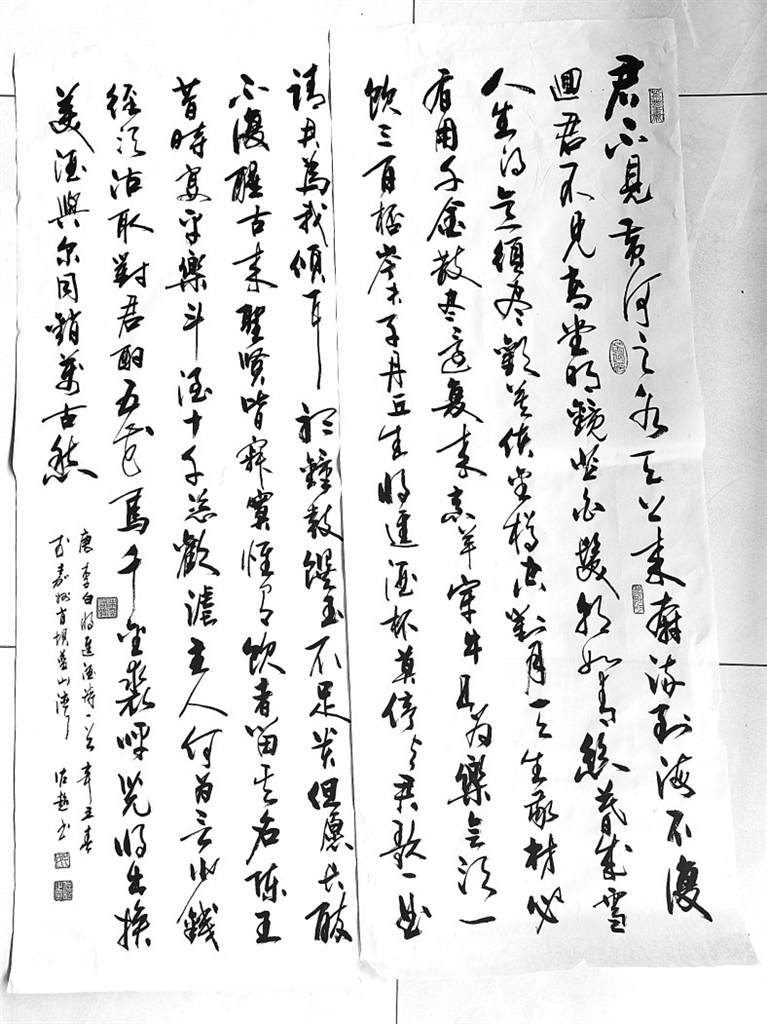 君不見黃河之水天上來奔流到海不復
迴君不見高堂明鏡悲白髮朝如青絲暮成雪
人生得意須盡歡莫使金樽空對月天生我材必
有用千金散盡還復來烹羊宰牛且為樂會須一
飲三百杯岑夫子丹丘生將進酒杯莫停與君歌一曲
請君為我傾耳聽鐘鼓饌玉不足貴但願長醉
不復醒古來聖賢皆寂寞惟有飲者留其名陳王
昔時宴平樂斗酒十千恣歡謔主人何為言少錢
徑須沽取對君酌五花馬千金裘呼兒將出換
美酒與爾同銷萬古愁
唐李白將進酒詩一首辛丑春